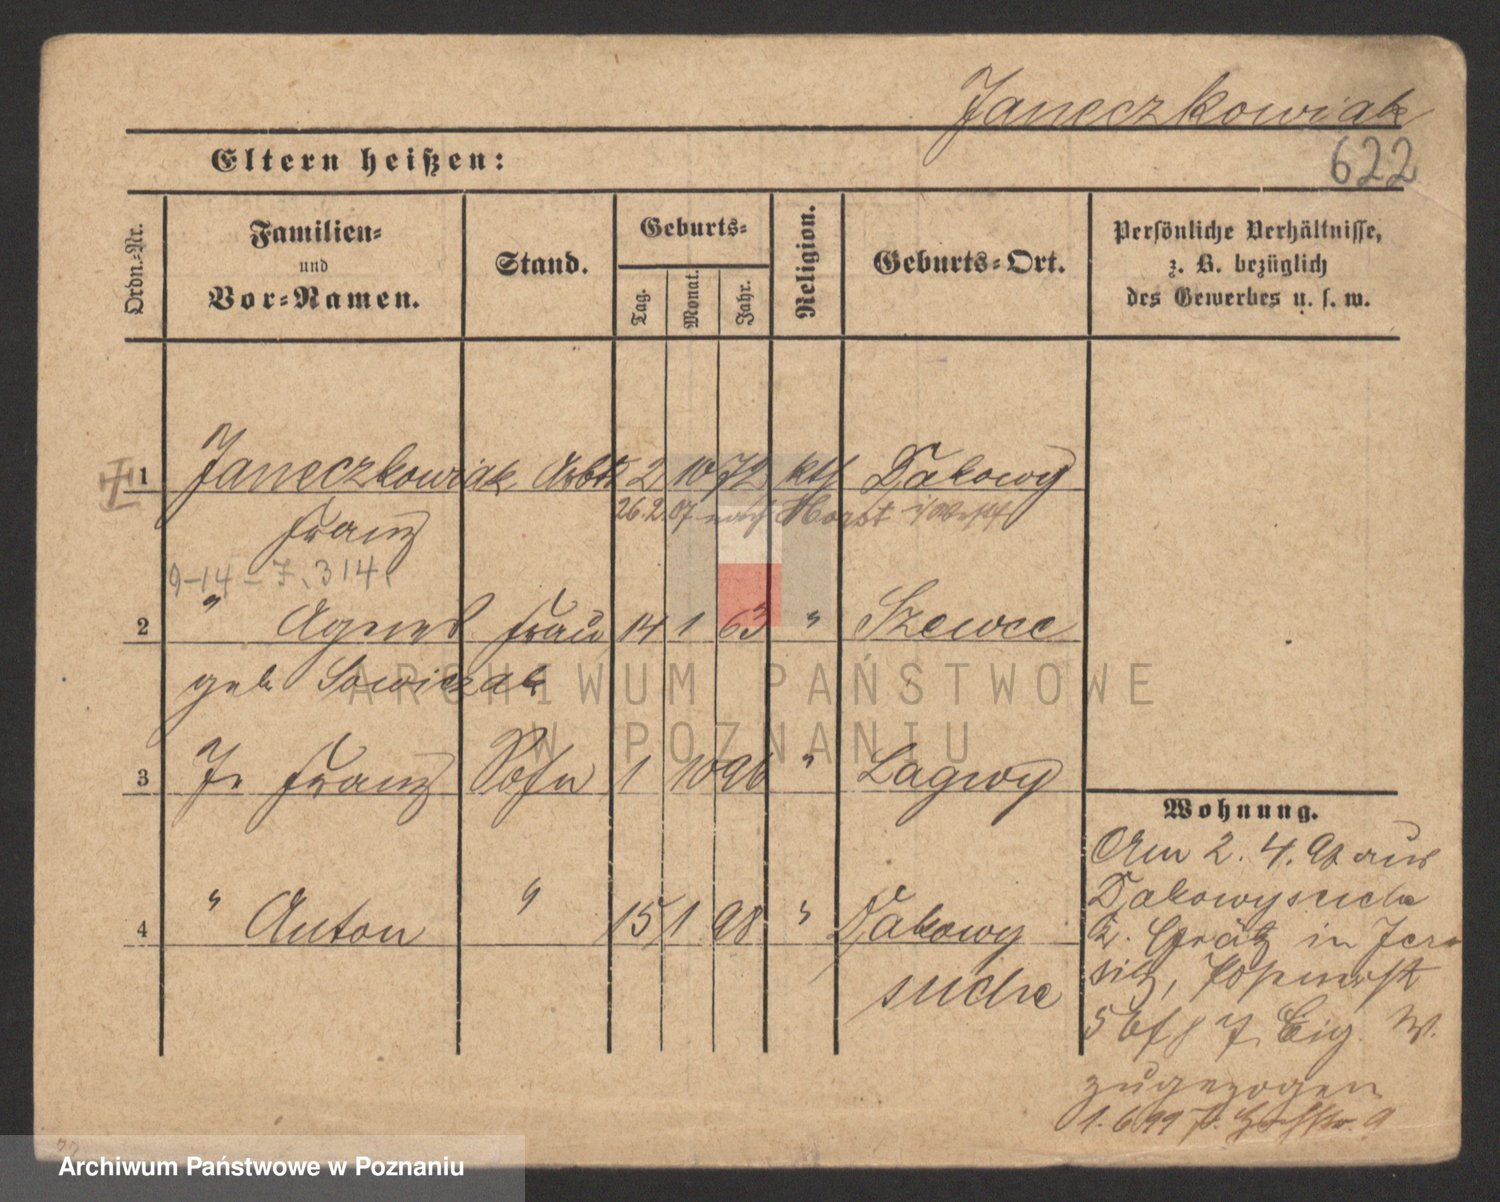 Janeczkowiak
622
Eltern heißen:
Ordn.-Nr.
Familien-
und
Vor-Namen.
Stand.
Geburts-
Tag.
Monat.
Jahr.
Religion.
Geburts-Ort.
Persönliche Verhältnisse,
z. B. bezüglich
des Gewerbes u. s. w.
1 Janeczkowiak Arbtr 2 10 72 kth Dakowy
26.2.07 nach Horst i/Westf
Franz
9-14-7.314
2 " Agnes Frau 14 1 63 " Szewce
geb Sowiczak
3 Franz Sohn 1 10 96 " Lagwy
4 " Anton " 15 1 98 " Dakowy
suche
Wohnung.
Am 2.4.98 aus
Dakowysuche
K. Grätz in Jer
sitz,
W.
zugezogen
1.6.99
ARCHIWUM PAŃSTWOWE
W POZNANIU
Archiwum Państwowe w Poznaniu